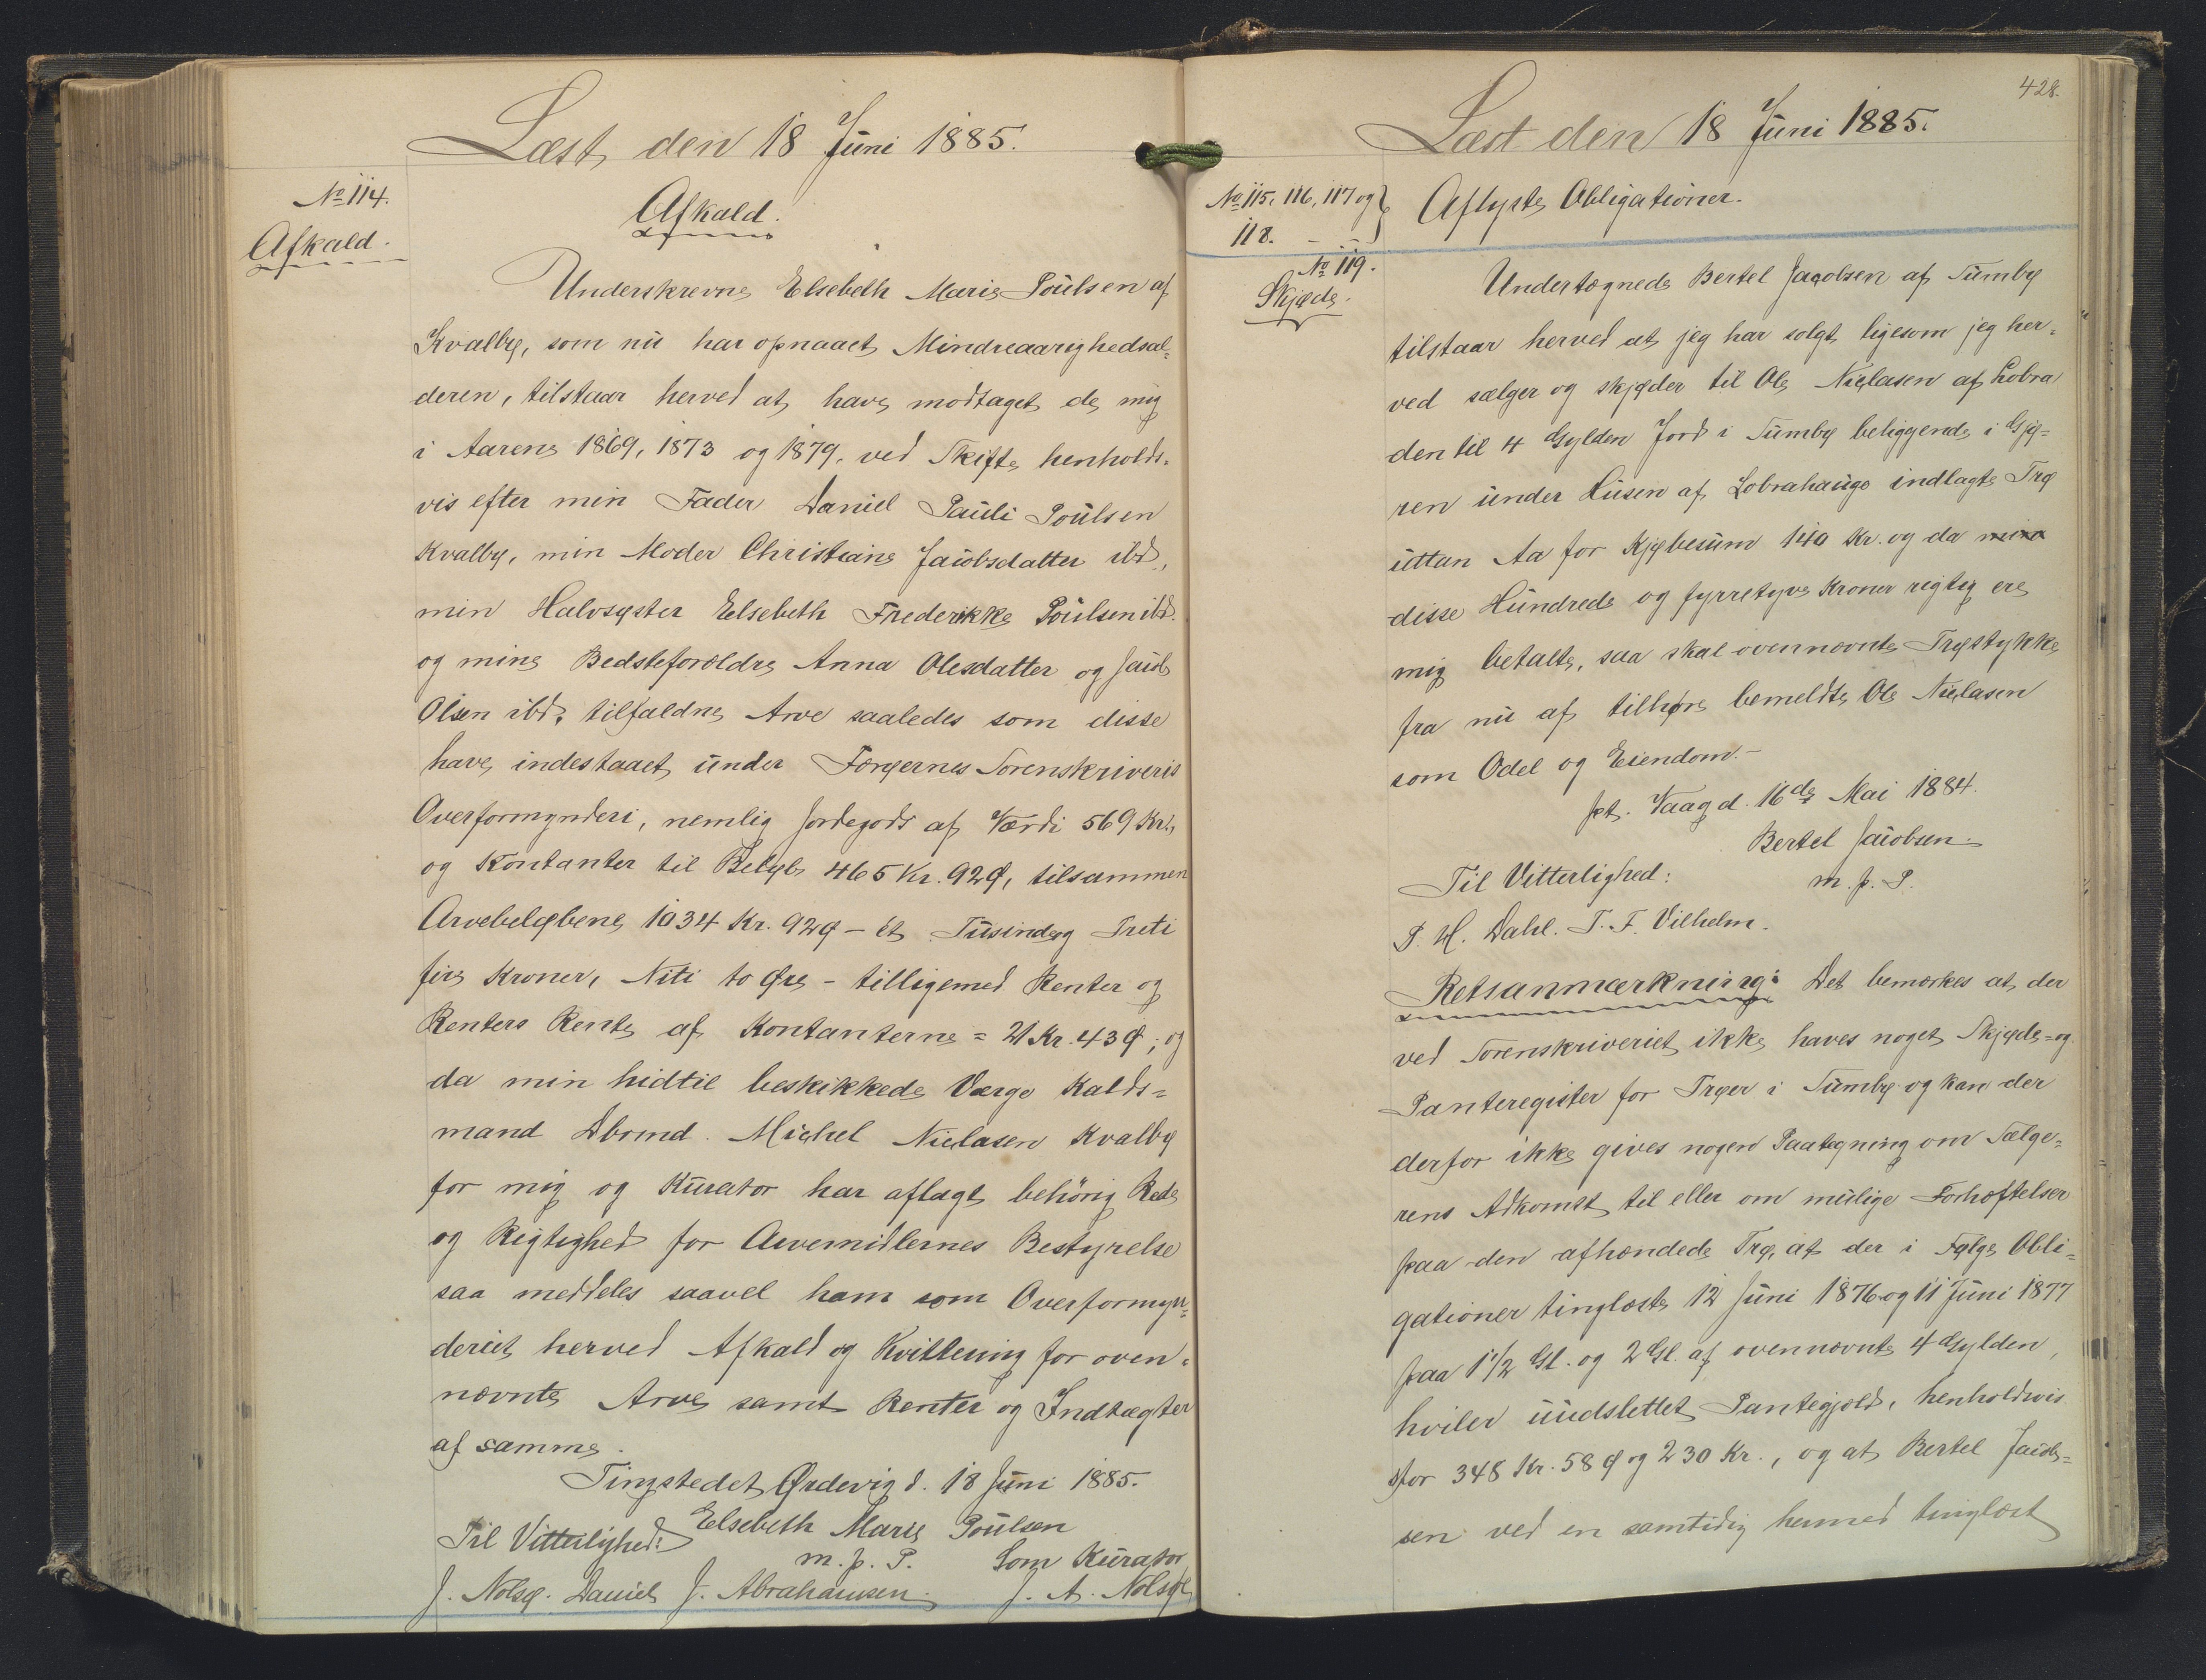 Læst den 18 Juni 1885.
No 114.
Afkald.
Afkald.
Underskrevne Elsebeth Marie Poulsen af
Kvalbø, som nu har opnaaet Mindreaarighedsal=
deren, tilstaar herved at have modtaget de mig
i Aarene 1869, 1873 og 1879, ved Skifte henholds=
vis efter min Fader Daniel Pauli Poulsen
Kvalbø, min Moder Christiane Jacobsdatter ibd.,
min Halvsyster Elsebeth Frederikke Poulsen ibd.
og mine Bedsteforældre Anna Olesdatter og Jacob
Olsen ibd. tilfaldne Arve saaledes som disse
have indestaaet under Færøernes Sorenskriveris
Overformynderi, nemlig Jordegods af Værdi 569 Kr.,
og Kontanter til Beløb 465 Kr. 92 Ø, tilsammen
Arvebeløbene 1034 Kr. 92 Ø - ét Tusind og Treti
fire Kroner, Niti to Øre - tilligemed Renter og
Renters Rente af Kontanterne = 21 Kr. 43 Ø; og
da min hidtil beskikkede Værge Kalds=
mand Dbrmd. Michel Niclasen Kvalbø
for mig og Kurator har aflagt behörig Rede
og Rigtighed for Arvemidlernes Bestyrelse
saa meddeles saavel ham som Overformyn=
deriet herved Afkald og Kvittering for oven=
nævnte Arve samt Renter og Indtægter
af samme.
Tingstedet Ørdevig d. 18 Juni 1885.
Elsebeth Marie Poulsen
Til Vitterlighed:
m. p. P. Som Kurator
J. Nolsø. Daniel J. Abrahamsen. J. A. Nolsøe
428.
Læst den 18 Juni 1885.
No 115, 116, 117 og
118.
Aflyste Obligationer.
No 119.
Skjøde.
Undertegnede Bertel Jacobsen af Sumbø
tilstaar herved at jeg har solgt, ligesom jeg her=
ved sælger og skjøder til Ole Niclasen af Lobra
den til 4 Gylden Jord i Sumbø beliggende i Gjø=
ren under Husen af Lobrahauge indlagte Trø
uttan Aa for Kjøbesum 140 Kr. og da mina
disse Hundrede og fyrretyve Kroner rigtig ere
mig betalte, saa skal ovennævnte Trøstykke
fra nu af tilhøre bemeldte Ole Niclasen
som Odel og Eiendom. -
pt. Vaag d. 16de Mai 1884.
Bertel Jacobsen
Til Vitterlighed:
m. p. P.
P. H. Dahl. T. F. Vilhelm.
Retsanmærkning: Det bemærkes at, der
ved Sorenskriveriet ikke haves noget Skjøde= og
Panteregister for Trøer i Sumbø og kan der
derfor ikke gives nogen Paategning om Sælge=
rens Adkomst til eller om mulige Forhæftelser
paa den afhændede Trø, at der i Følge Obli=
gationer tinglæste 12 Juni 1876 og 11 Juni 1877
paa 1 1/2 Gl. og 2 Gl. af ovennævnte 4 Gylden,
hviler uudslettet Pantegjæld, henholdsvis
for 348 Kr. 58 Ø og 230 Kr., og at Bertel Jacob=
sen ved en samtidig hermed tinglæst